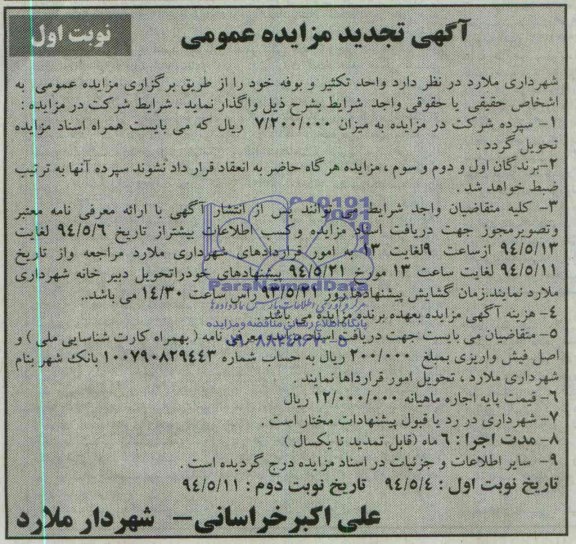 آگهی تجدید مزایده عمومی
نوبت اول
شهرداری ملارد در نظر دارد واحد تکثیر و بوفه خود را از طریق برگزاری مزایده عمومی به
اشخاص حقیقی یا حقوقی واجد شرایط بشرح ذیل واگذار نماید . شرایط شرکت در مزایده :
۱- سپرده شرکت در مزایده به میزان ۷/۲۰۰/۰۰۰ ریال که می بایست همراه اسناد مزایده
تحویل گردد .
۲-برندگان اول و دوم و سوم ، مزایده هر گاه حاضر به انعقاد قرار داد نشوند سپرده آنها به ترتیب
ضبط خواهد شد .
۳- کلیه متقاضیان واجد شرایط می توانند پس از انتشار آگهی با ارائه معرفی نامه معتبر
وتصویرمجوز جهت دریافت اسناد مزایده وکسب اطلاعات بیشتراز تاریخ ۹۴/۵/۶ لغایت
۹۴/۵/۱۳ ازساعت ۹لغایت ۱۳ به امور قراردادهای شهرداری ملارد مراجعه واز تاریخ
۹۴/۵/۱۱ لغایت ساعت ۱۳ مورخ ۹۴/۵/۲۱ پیشنهادهای خودراتحویل دبیر خانه شهرداری
ملارد نمایند.زمان گشایش پیشنهادها روز ۹۳/۵/۲۱ راس ساعت ۱۴/۳۰ می باشد..
۴- هزینه آگهی مزایده بعهده برنده مزایده می باشد
۵- متقاضیان می بایست جهت دریافت اسناد مزایده معرفی نامه ( بهمراه کارت شناسایی ملی ) و
اصل فیش واریزی بمبلغ ۲۰۰/۰۰۰ ریال به حساب شماره ۱۰۰۷۹۰۸۲۹۴۴۳ بانک شهر بنام
شهرداری ملارد ، تحویل امور قراردادها نمایند .
۶- قیمت پایه اجاره ماهیانه ۱۲/۰۰۰/۰۰۰ ریال
۷- شهرداری در رد یا قبول پیشنهادات مختار است .
۸- مدت اجرا : ۶ ماه (قابل تمدید تا یکسال )
۹- سایر اطلاعات و جزئیات در اسناد مزایده درج گردیده است .
تاریخ نوبت اول : ۹۴/۵/۴ تاریخ نوبت دوم : ۹۴/۵/۱۱
علی اکبر خراسانی- شهردار ملارد
ParsNamadData
پایگاه اطلاع رسانی مناقصه و مزایده